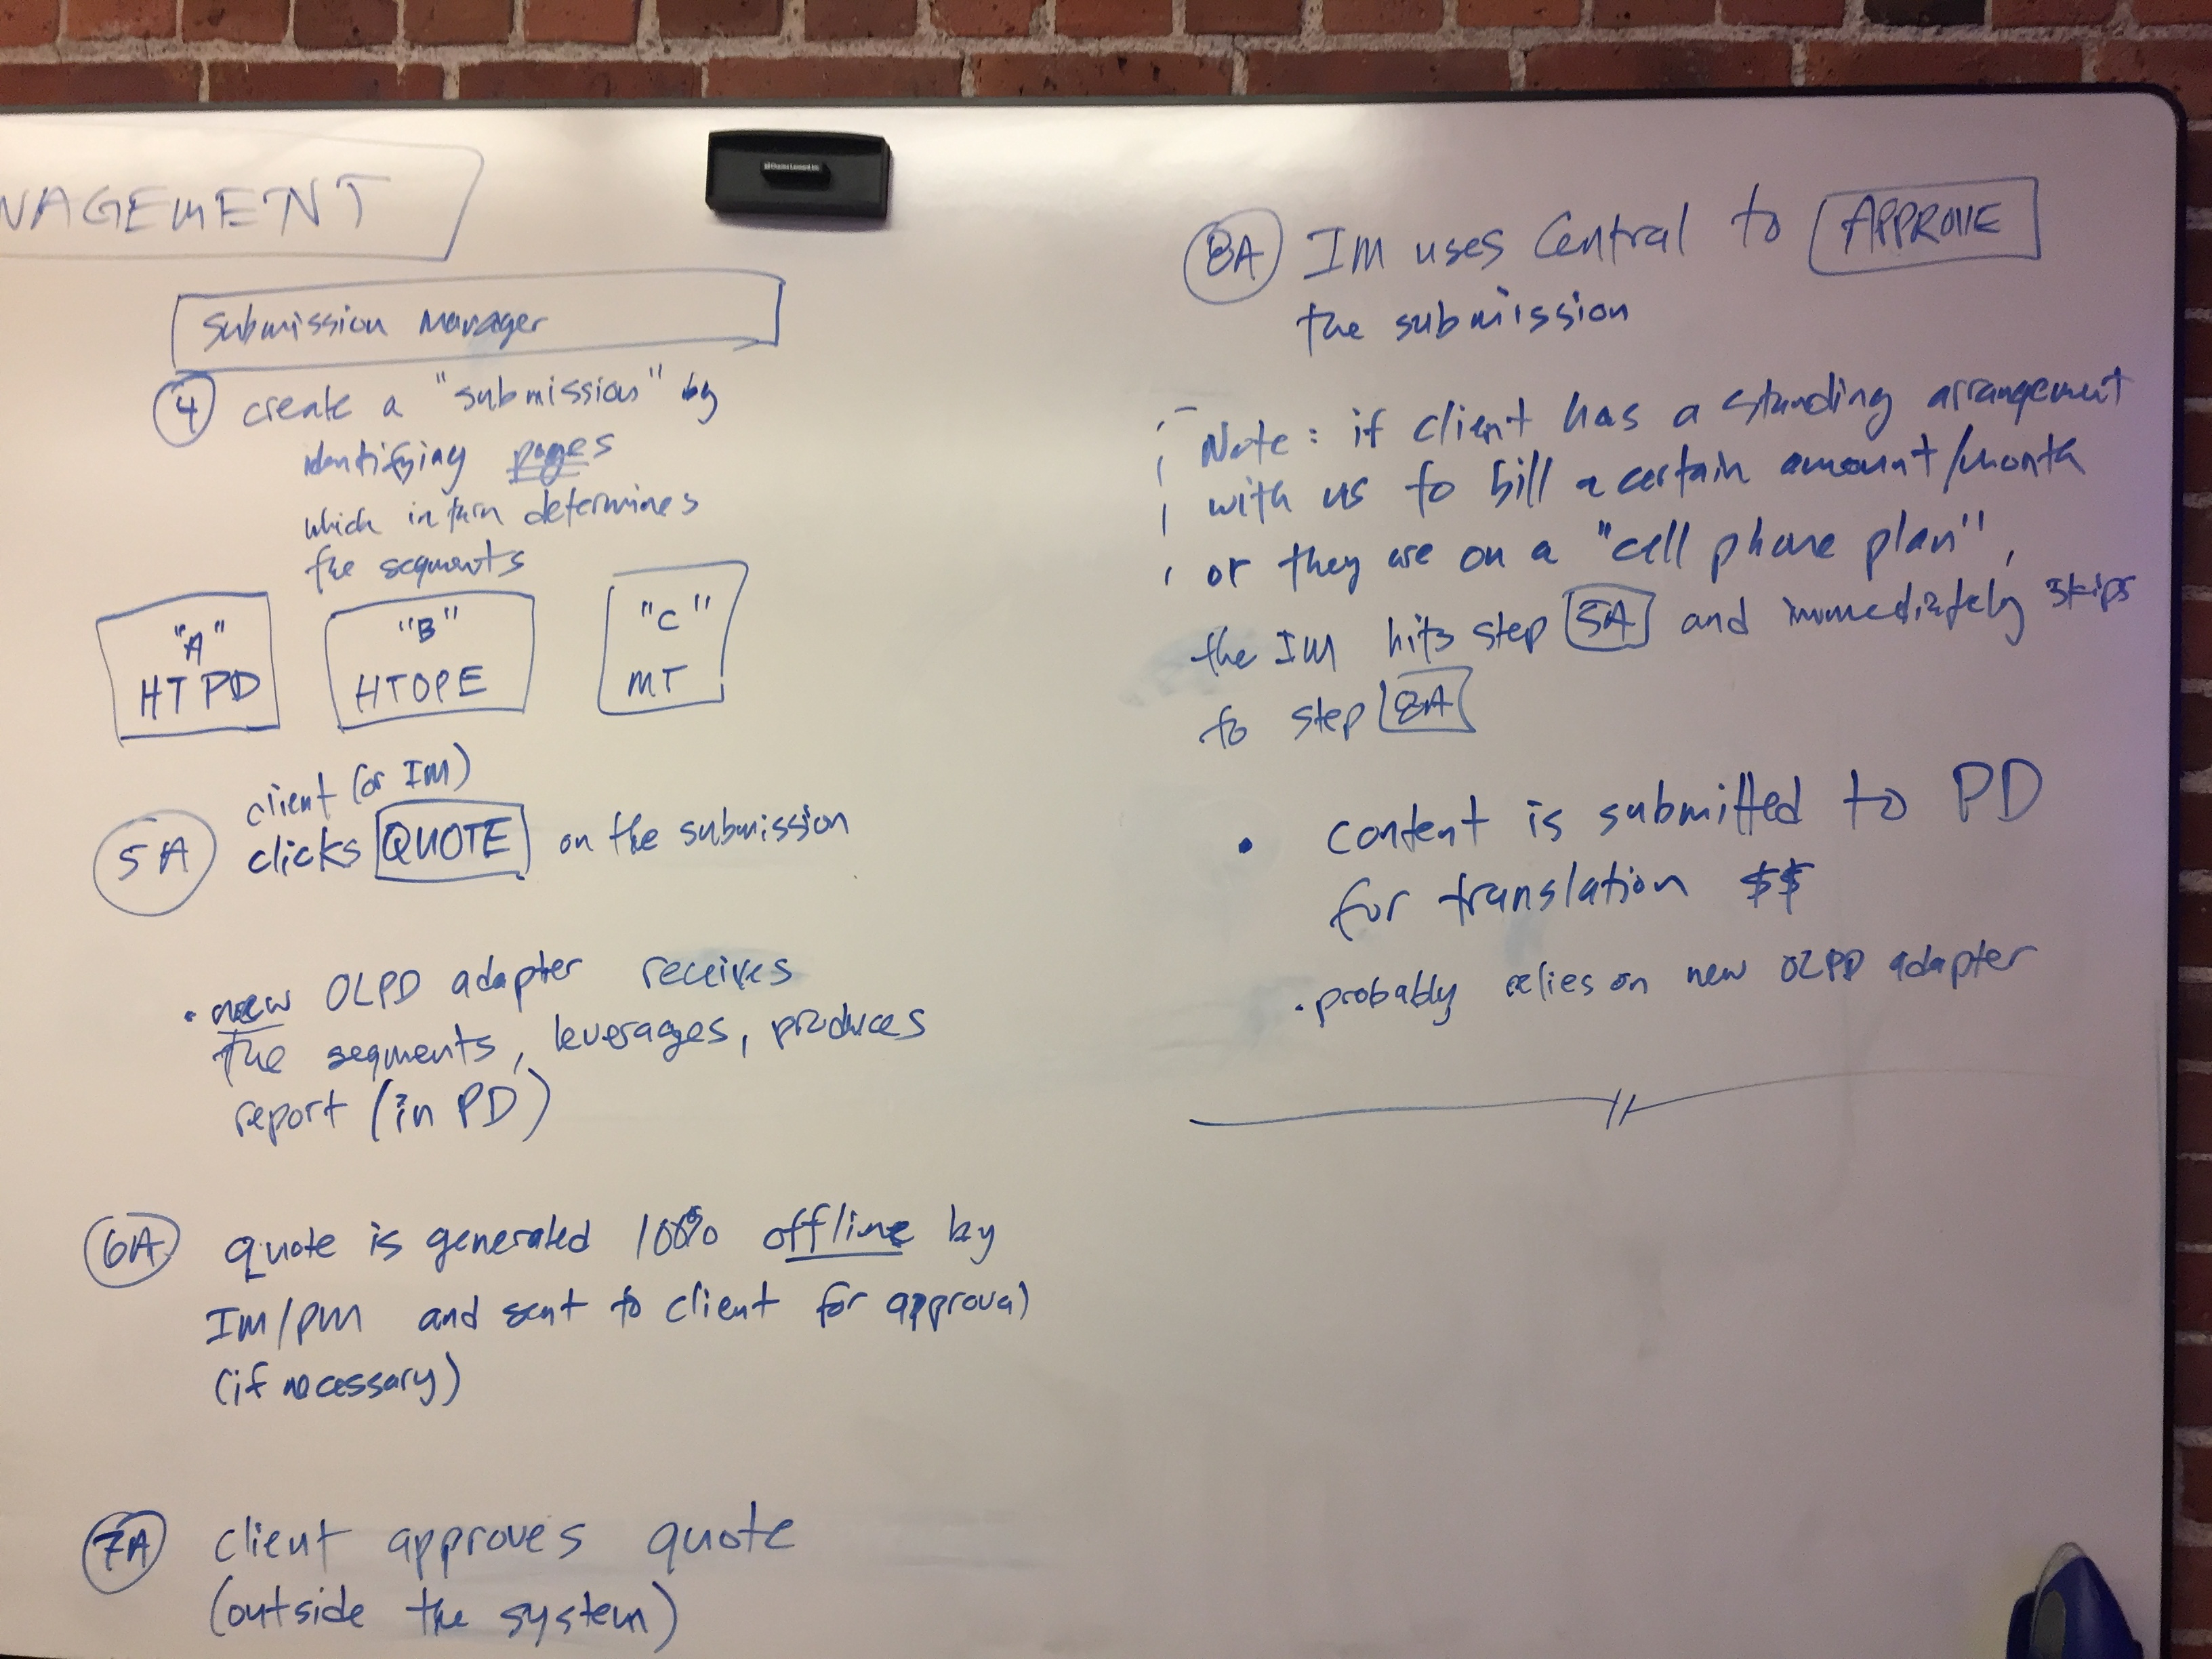 NAGEMENT
Submission Manager
4 create a "submission" by
identifying pages
which in turn determines
the segments
"A"
HTPD
"B"
HTOPE
"C"
MT
client (or IM)
5A clicks QUOTE on the submission
• new OLPD adapter receives
the segments, leverages, produces
report (in PD)
6A quote is generated 100% offline by
IM/PM and sent to client for approval
(if necessary)
7A client approves quote
(outside the system)
8A IM uses Central to APPROVE
the submission
Note: if client has a standing arrangement
with us to bill a certain amount/month
or they are on a "cell phone plan",
the IM hits step 5A and immediately skips
to step 8A
• content is submitted to PD
for translation $$
• probably relies on new OLPD adapter